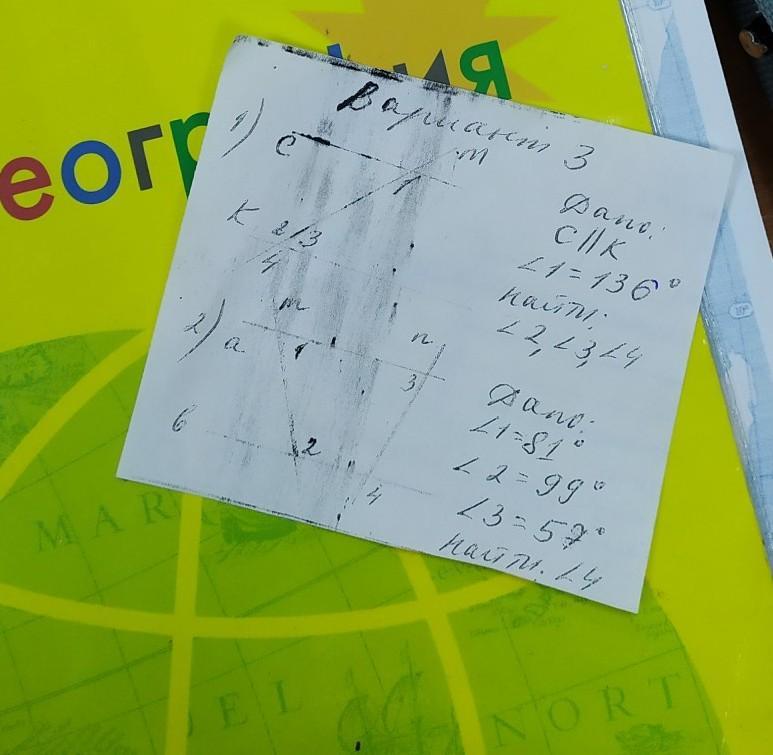 еогр ия
Вариант 3
1)
C
m
1
K
2 3
4
Дано:
C||K
∠1=136°
Найти:
∠2,∠3,∠4
2)
m
a
1
n
3
в
2
4
Дано:
∠1=81°
∠2=99°
∠3=57°
Найти. ∠4
MAR
JEL
NORT